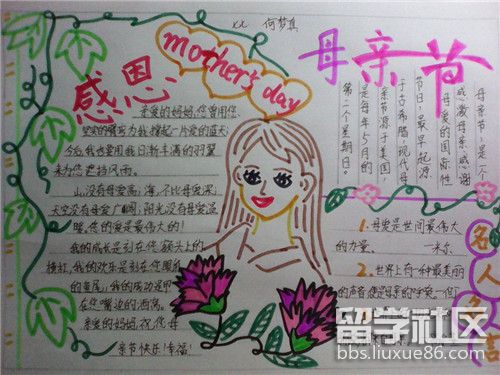 xx 何梦真
感恩
mother's day
母亲节
亲爱的妈妈,您曾用您
坚实的臂弯为我撑起一片爱的蓝天;
今后我也要用我日渐丰满的羽翼
来为您遮挡风雨。
山,没有母爱高;海,不比母爱深;
天空没有母爱广阔;阳光没有母爱温
暖,您的爱是最伟大的!
我的成长是刻在您额头上的
横杠,我的欢乐是刻在您眼角
的鱼尾,我的成功是
在您嘴边的酒窝。
亲爱的妈妈,祝您母
亲节快乐!幸福!
母亲节,是一个
感激母亲,感谢
母爱的国际性
节日,最早起源
于古希腊,现代母
亲节源于美国,
是每年5月的
第二个星期日。
名人名言
1.母爱是世间最伟大
的力量。 —米尔
2.世界上有一种最美丽
的声音,便是母亲的呼唤。—但丁
留学社区
bbs.liuxue86.com